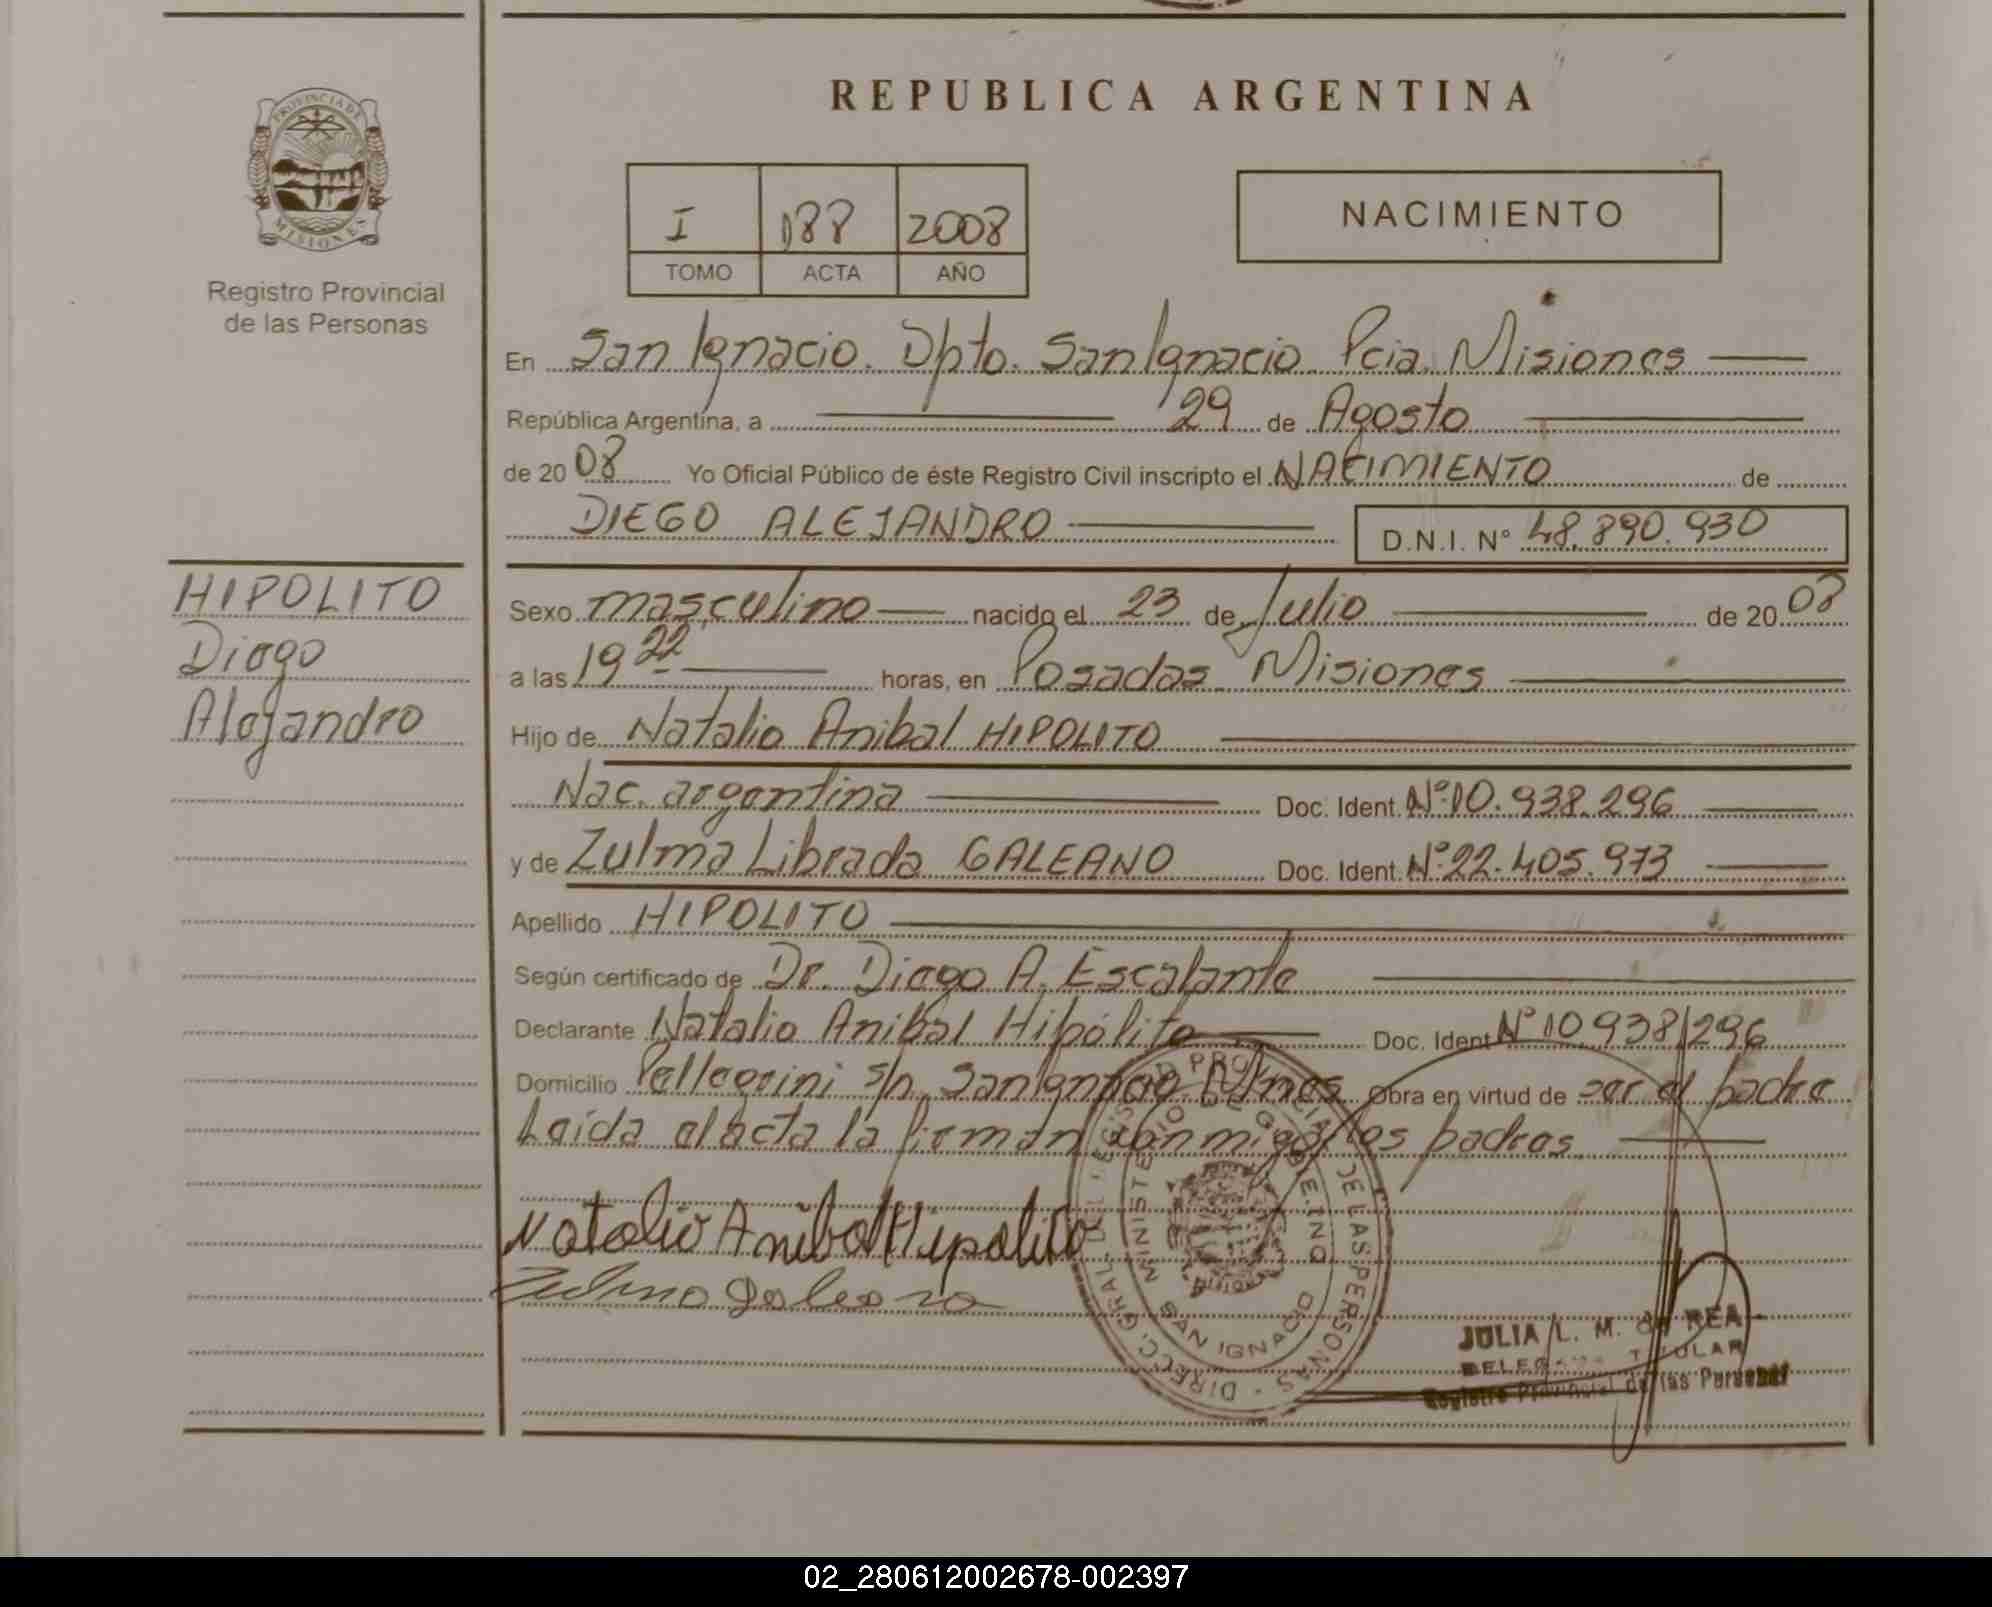 REPUBLICA ARGENTINA
PROVINCIA DE
MISIONES
Registro Provincial
de las Personas
I 188 2008
TOMO ACTA AÑO
NACIMIENTO
En San Ignacio. Dpto. San Ignacio Pcia. Misiones
República Argentina, a 29 de Agosto
de 2008 Yo Oficial Público de éste Registro Civil inscripto el NACIMIENTO de
DIEGO ALEJANDRO D.N.I. N° 48.890.930
HIPOLITO
Diego
Alejandro
Sexo masculino nacido el 23 de Julio de 2008
a las 19 22 horas, en Posadas Misiones
Hijo de Natalio Anibal HIPOLITO
Nac. argentina Doc. Ident. Nº 10.938.296
y de Zulma Librada GALEANO Doc. Ident. Nº 22.405.973
Apellido HIPOLITO
Según certificado de Dr. Diego A. Escalante
Declarante Natalio Anibal Hipólito Doc. Ident Nº 10.938.296
Domicilio Pellegrini s/n San Ignacio Mnes. Obra en virtud de ser el padre
Leída el acta la firman conmigo los padres.
Natalio Anibal Hipolito
Zulma Galeano
DIRECC. GRAL. DEL REGISTRO PROVINCIAL DE LAS PERSONAS
MINISTERIO DE GOBIERNO
SAN IGNACIO
JULIA L. M. de REA
DELEGADA TITULAR
Registro Provincial de las Personas
02_280612002678-002397